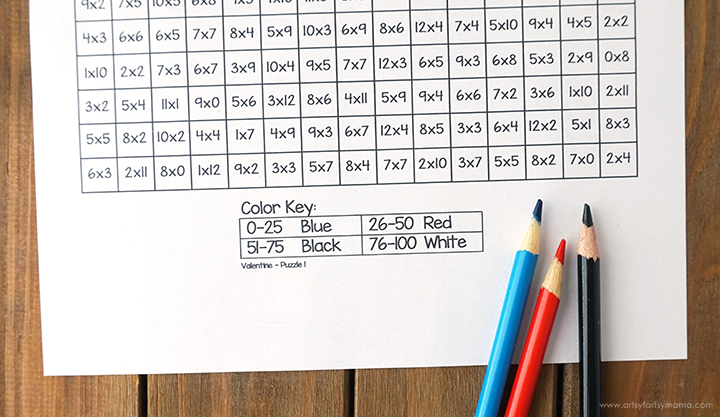 9x2 7x5 10x5 6x8
4x3 6x6 6x5 7x7 8x4 5x9 10x3 6x9 8x6 12x4 7x4 5x10 9x4 4x5 2x2
1x10 2x2 7x3 6x7 3x9 10x4 9x5 7x7 12x3 6x5 9x3 6x8 5x3 2x9 0x8
3x2 5x4 11x1 9x0 5x6 3x12 8x6 4x11 5x9 9x4 6x6 7x2 3x6 1x10 2x11
5x5 8x2 10x2 4x4 1x7 4x9 9x3 6x7 12x4 8x5 3x3 6x4 12x2 5x1 8x3
6x3 2x11 8x0 1x12 9x2 3x3 5x7 8x4 7x7 2x10 3x7 5x5 8x2 7x0 2x4
Color Key:
0-25 Blue 26-50 Red
51-75 Black 76-100 White
Valentine - Puzzle 1
www.artsyfartsymama.com